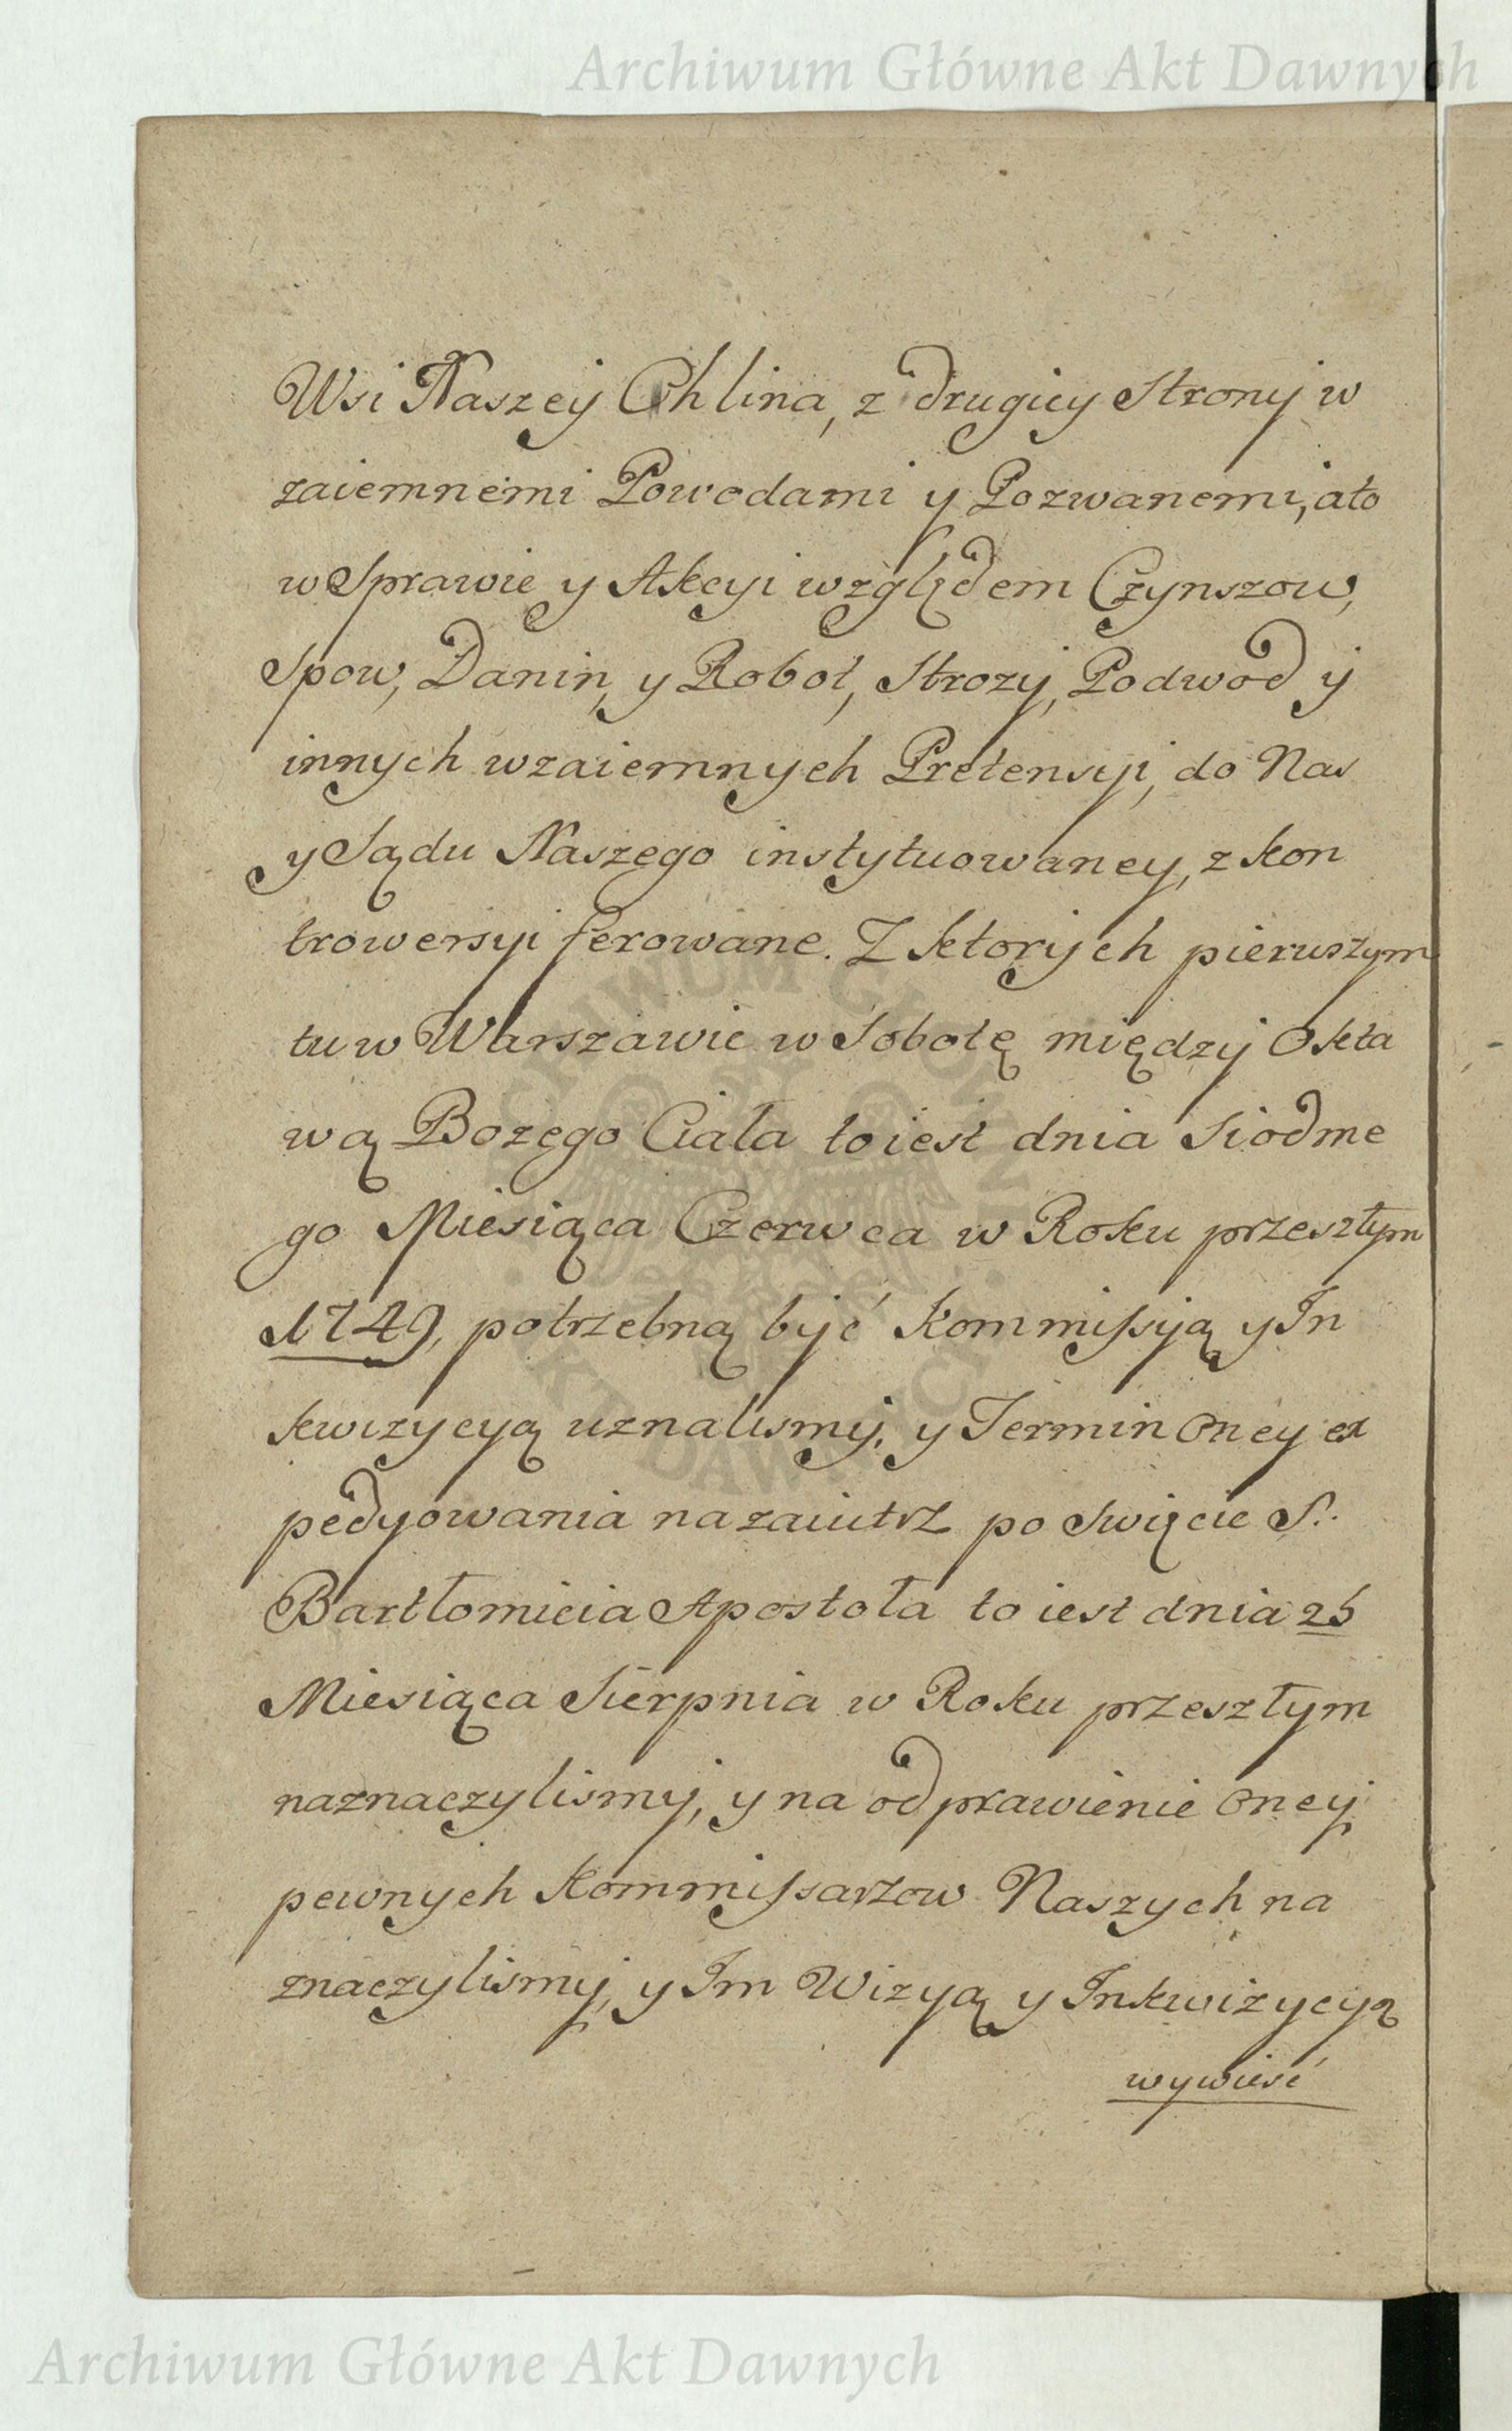 Archiwum Główne Akt Dawnych
Wsi Naszey Chlina, z drugiey Strony w
zaiemnemi Powodami y Pozwanemi, ato
w Sprawie y Akcyi względem Czynszow,
Spow, Danin, y Robot, Strozy, Podwod y
innych wzaiemnych Pretensyi, do Nas
y Sądu Naszego instytuowaney, z kon
trowersyi ferowane. Z ktorych pierwszym
tu w Warszawie w Sobotę między Okta
wą Bożego Ciała to iest dnia Siodme
go Miesiąca Czerwca w Roku przeszłym
1749, potrzebną być Kommissyą y In
kwizycyą uznalismy, y Termin oney ex
pedyowania nazaiutrz po Swięcie S.
Bartłomieia Apostoła to iest dnia 25
Miesiąca Sierpnia w Roku przeszłym
naznaczylismy, y na odprawienie oney
pewnych Kommissarzow Naszych na
znaczylismy, y Im Wizyą y Inkwizycyą
wywiesć
ARCHIWUM GŁÓWNE AKT DAWNYCH
Archiwum Główne Akt Dawnych